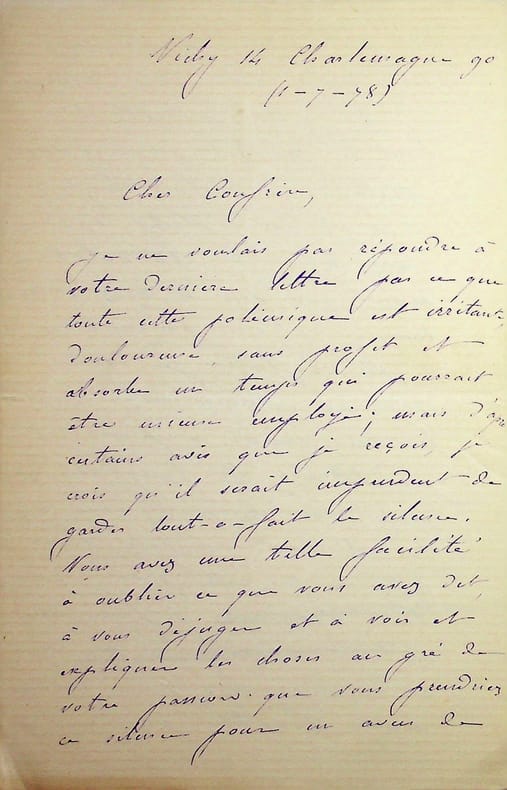 Vichy 14 Charlemagne 90
(1-7-78)
Cher Confrère,
je ne voulais pas répondre à
votre dernière lettre par ce que
toute cette polémique est irritante,
douloureuse, sans profit et
absorbe un temps qui pourrait
être mieux employé; mais d'après
certains avis que je reçois, je
crois qu'il serait imprudent de
garder tout-à-fait le silence.
Vous avez une telle facilité
à oublier ce que vous avez dit,
à vous déjuger et à voir et
expliquer les choses au gré de
votre passion que vous prendriez
ce silence pour un aveu de